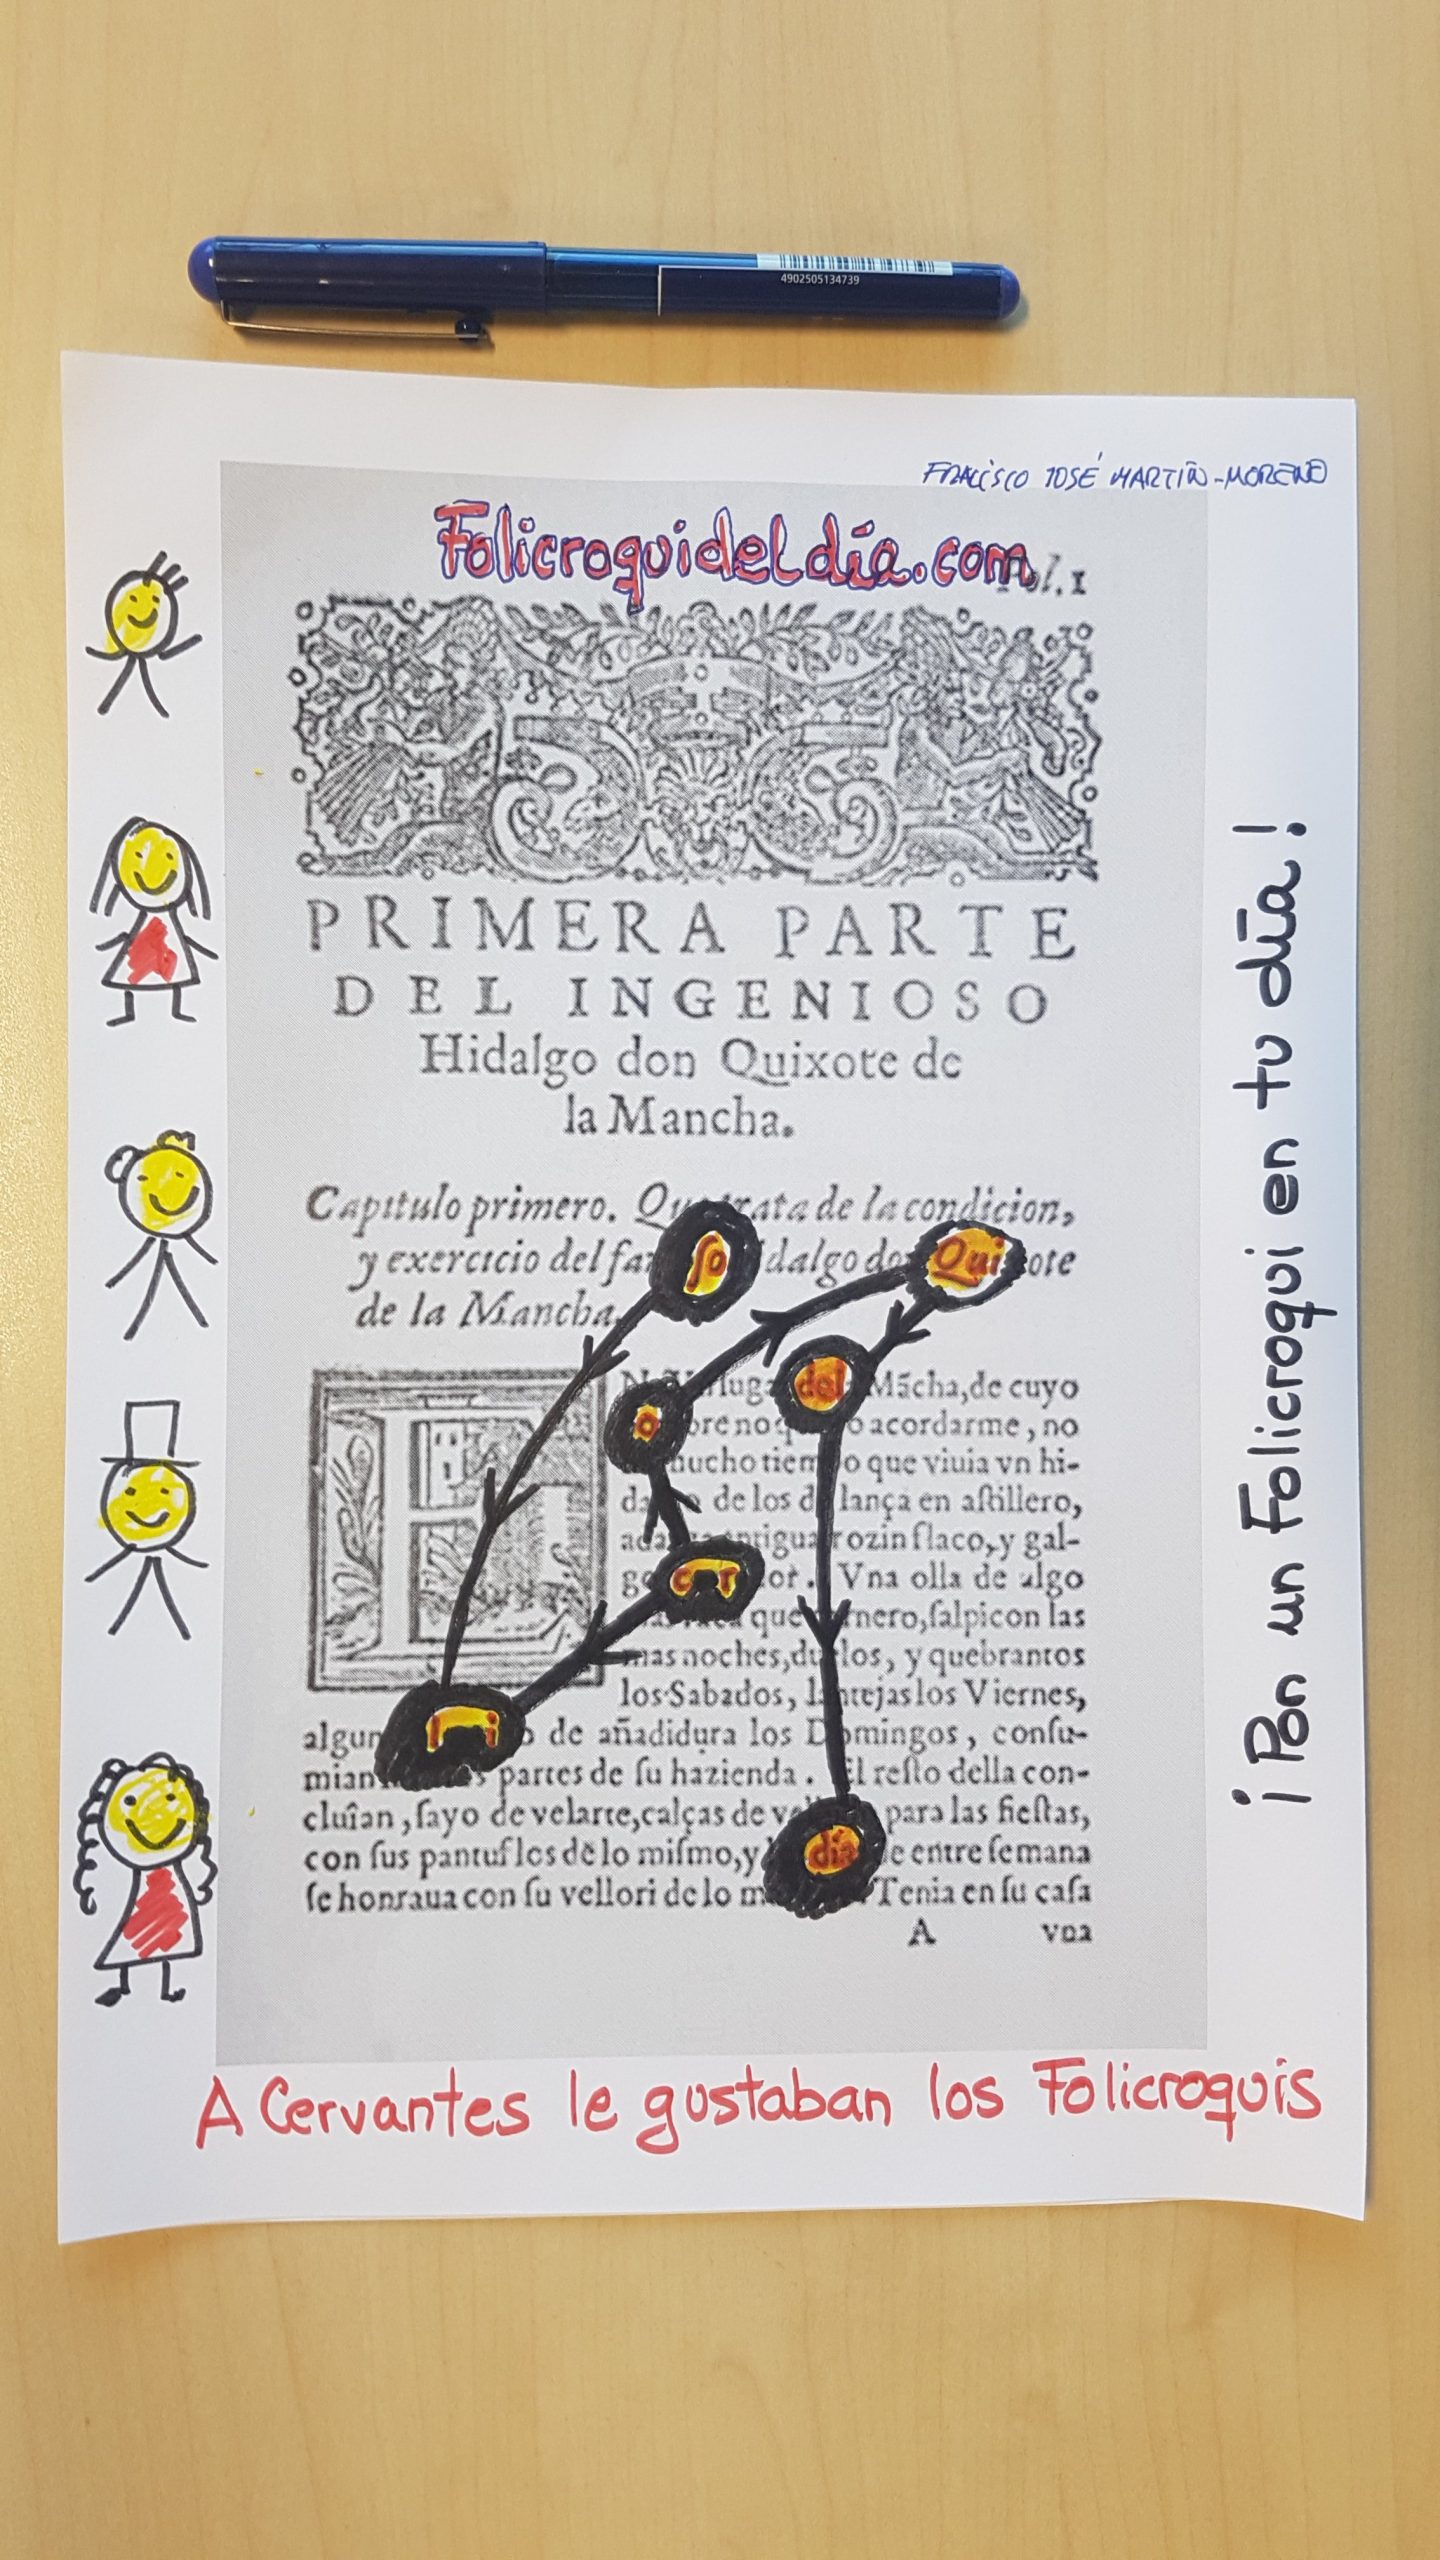 4902505134739
FRANCISCO JOSÉ MARTÍN-MORENO
Folicroquideldía.com
Fol. 1
PRIMERA PARTE
DEL INGENIOSO
Hidalgo don Quixote de
la Mancha.
Capitulo primero. Que trata de la condicion,
y exercicio del fa ſo dalgo do Qui ote
de la Mancha.
lugar del Mãcha, de cuyo
o bre no q o acordarme, no
mucho tiempo que viuia vn hi-
da de los de lança en aſtillero,
ada antigua, rozin flaco, y gal-
go c r dor. Vna olla de algo
vaca que rnero, ſalpicon las
mas noches, duelos, y quebrantos
los Sabados, lantejas los Viernes,
algun l i o de añadidura los Domingos, conſu-
mian s partes de ſu hazienda. El reſto della con-
cluîan, ſayo de velarte, calças de ve para las fieſtas,
con ſus pantuflos de lo miſmo, y dia de entre ſemana
ſe honraua con ſu vellori de lo m Tenia en ſu caſa
A vna
¡Pon un Folicroqui en tu día!
A Cervantes le gustaban los Folicroquis